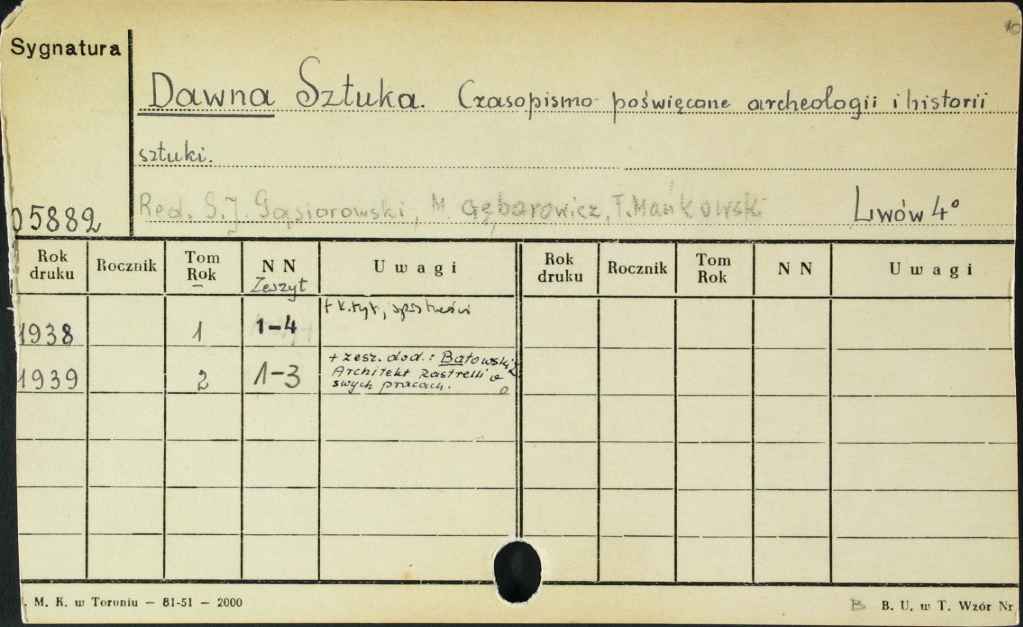 10
Sygnatura
Dawna Sztuka. Czasopismo poświęcone archeologii i historii
sztuki.
05882
Red. S. J. Gąsiorowski, M. Gębarowicz, T. Mańkowski
Lwów 4°
Rok druku Rocznik Tom Rok N N Zeszyt Uwagi Rok druku Rocznik Tom Rok N N Uwagi
1938 1 1-4 + k. tyt., spis treści
1939 2 1-3 + zesz. dod.: Batowski Z
Architekt Rastrelli o
swych pracach.
. M. K. w Toruniu — 81-51 — 2000
B B. U. w T. Wzór Nr